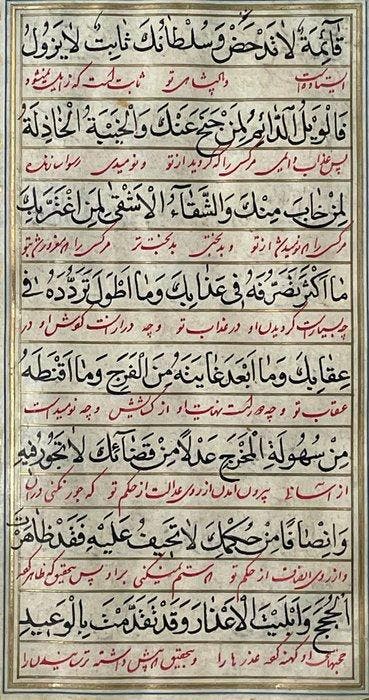 قَآئِمَةٌ لَا تُدْحَضُ وَسُلْطَانُكَ ثَابِتٌ لَا يَزُولُ
ايستاده است و پادشاهى تو ثابت است كه زايل نميشود
فَالْوَيْلُ الدَّآئِمُ لِمَنْ جَنَحَ عَنْكَ وَالْخَيْبَةُ الْخَاذِلَةُ
پس عذاب دايمى مر كسى را كه گرديد از تو و نوميدى رسوا
لِمَنْ خَابَ مِنْكَ وَالشَّقَآءُ الْأَشْقَى لِمَنِ اغْتَرَّ بِكَ
مر كسى را كه نوميد شد از تو و بدبختى بدبخت تر مر كسى را كه مغرور شد بتو
مَا أَكْثَرَ تَصَرُّفَهُ فِى عَذَابِكَ وَمَا أَطْوَلَ تَرَدُّدَهُ فِى
چه بسيار است گرديدن او در عذاب تو و چه دراز است او در
عِقَابِكَ وَمَا أَبْعَدَ غَايَتَهُ مِنَ الْفَرَجِ وَمَا أَقْنَطَهُ
عقاب تو و چه دور است نهايت او از گشايش و چه نوميد است
مِنْ سُهُولَةِ الْمَخْرَجِ عَدْلًا مِنْ قَضَآئِكَ لَا تَجُورُ فِيهِ
از بيرون آمدن از روى عدالت از حكم تو كه جور نكنى در آن
وَإِنْصَافًا مِنْ حُكْمِكَ لَا تَحِيفُ عَلَيْهِ فَقَدْ ظَاهَرْتَ
و از روى انصاف از حكم تو كه ستم نميكنى بر او پس بتحقيق كه ظاهر
الْحُجَجَ وَأَبْلَيْتَ الْأَعْذَارَ وَقَدْ تَقَدَّمْتَ بِالْوَعِيدِ
حجتها را و كهنه عذرها را و بتحقيق كه پيش داشته ترسانيدن را